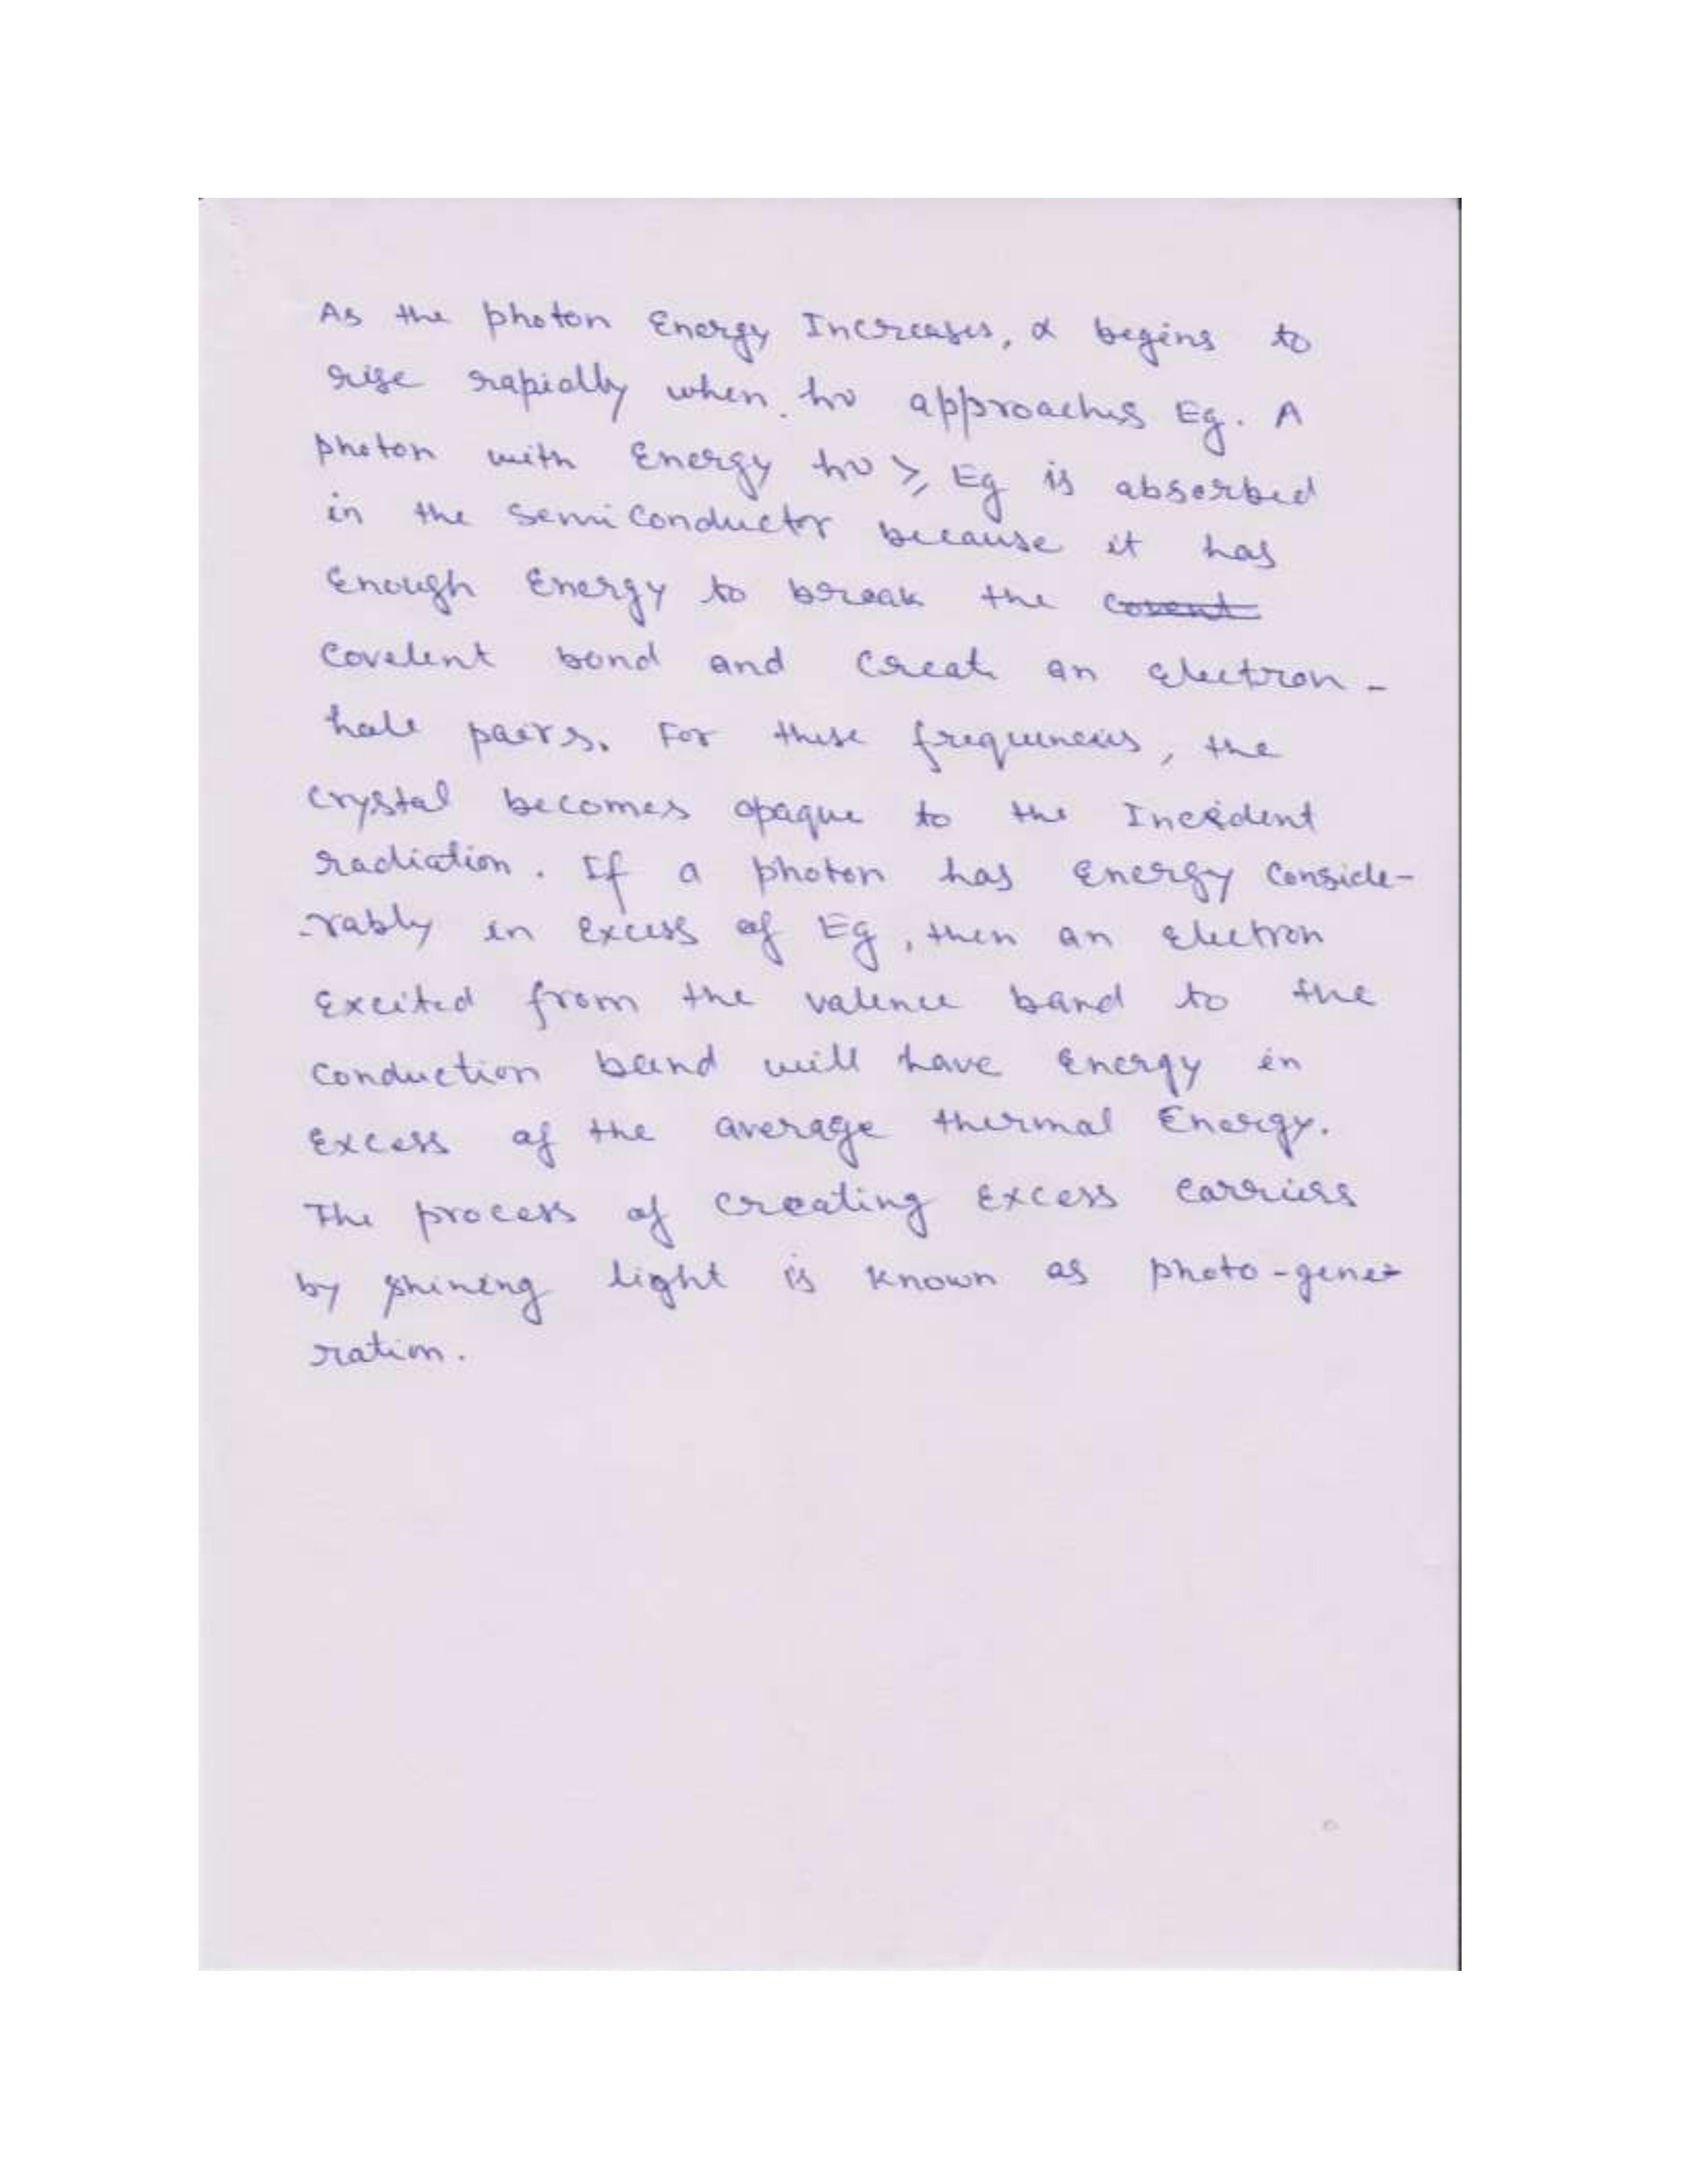 As the photon Energy Increases, α begins to
rise rapidly when hν approaches Eg. A
photon with Energy hν ⩾ Eg is absorbed
in the semiConductor because it has
Enough Energy to break the ~~covent~~
Covelent bond and Create an Electron-
hole pairs. For these frequencies, the
Crystal becomes opaque to the Incident
radiation. If a photon has Energy Conside-
-rably in Excess of Eg, then an Electron
Excited from the valence band to the
Conduction band will have Energy in
Excess of the average thermal Energy.
The process of creating Excess carriers
by shining light is known as photo-gene-
ration.